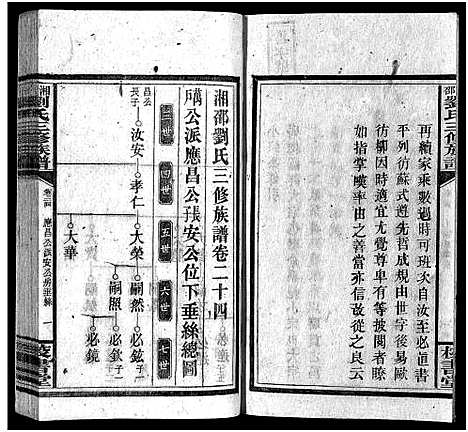 邵劉氏三修族譜
再續家乘數過時可汝至必直書
平列彷蘇式遵先哲成規由世字後易歐
彷柳因時適宜尤覺尊卑有等披閱者瞭
如指掌暎率由之善當亦信故從之良云
校書堂
湘邵劉氏三修族譜卷二十四
應昌公張安公位下垂絲總圖
三世
四世
五世
六世
七世
昌公長子
汝安
孝仁
大榮
嗣然
必鉉
子一
嗣照
必欽
子一
必鏡
大華
湘劉氏三修族譜
卷二十四
應昌公派安公房垂絲
一
校書堂